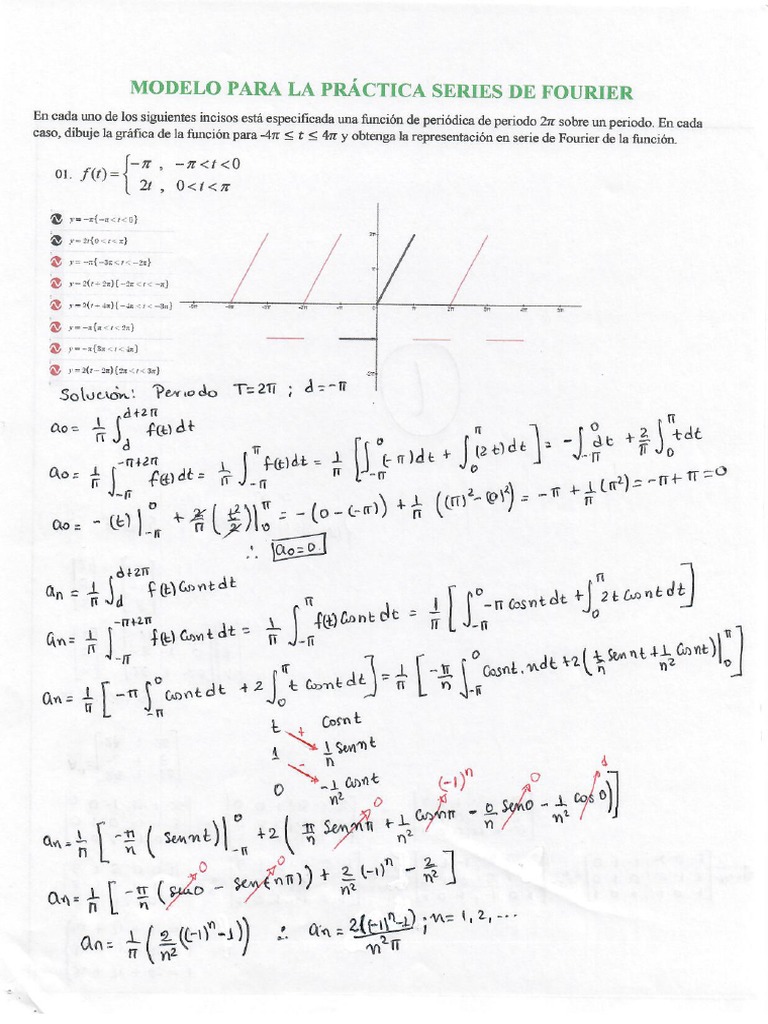 MODELO PARA LA PRÁCTICA SERIES DE FOURIER
En cada uno de los siguientes incisos está especificada una función de periódica de periodo 2π sobre un periodo. En cada
caso, dibuje la gráfica de la función para -4π ≤ t ≤ 4π y obtenga la representación en serie de Fourier de la función.
01. f(t) = { -π , -π < t < 0
2t , 0 < t < π
y = -π{-π < t < 0}
y = 2t{0 < t < π}
y = -π{-3π < t < -2π}
y = 2(t + 2π){-2π < t < -π}
y = 2(t + 4π){-4π < t < -3π}
y = -π{π < t < 2π}
y = -π{3π < t < 4π}
y = 2(t - 2π){2π < t < 3π}
Solución: Periodo T=2π ; d=-π
a₀ = 1/π ∫_d^{d+2π} f(t) dt
a₀ = 1/π ∫_{-π}^{-π+2π} f(t) dt = 1/π ∫_{-π}^{π} f(t) dt = 1/π [∫_{-π}^{0} (-π) dt + ∫_0^π (2t) dt] = -∫_{-π}^{0} dt + 2/π ∫_0^π t dt
a₀ = -(t)|_{-π}^{0} + 2/π (t²/2)|_0^π = -(0-(-π)) + 1/π ((π)²-(0)²) = -π + 1/π (π²) = -π + π = 0
∴ a₀=0.
an = 1/π ∫_d^{d+2π} f(t) Cosnt dt
an = 1/π ∫_{-π}^{-π+2π} f(t) Cosnt dt = 1/π ∫_{-π}^{π} f(t) Cosnt dt = 1/π [∫_{-π}^{0} -π Cosnt dt + ∫_0^π 2t Cosnt dt]
an = 1/π [-π ∫_{-π}^{0} Cosnt dt + 2 ∫_0^π t Cosnt dt] = 1/π [-π/n ∫_{-π}^{0} Cosnt. n dt + 2 (t/n Sennt + 1/n² Cosnt)|_0^π]
t + Cosnt
1 - 1/n Sennt
0 -1/n² Cosnt
an = 1/π [-π/n (Sennt)|_{-π}^{0} + 2 (π/n Sennπ 0 + 1/n² Cosnπ (-1)ⁿ - 0/n Sen0 0 - 1/n² Cos0 1)]
an = 1/π [-π/n (Sin0 0 - Sen(-nπ) 0) + 2/n² (-1)ⁿ - 2/n²]
an = 1/π (2/n² ((-1)ⁿ-1)) ∴ an = 2((-1)ⁿ-1)/n²π ; n=1, 2, ...